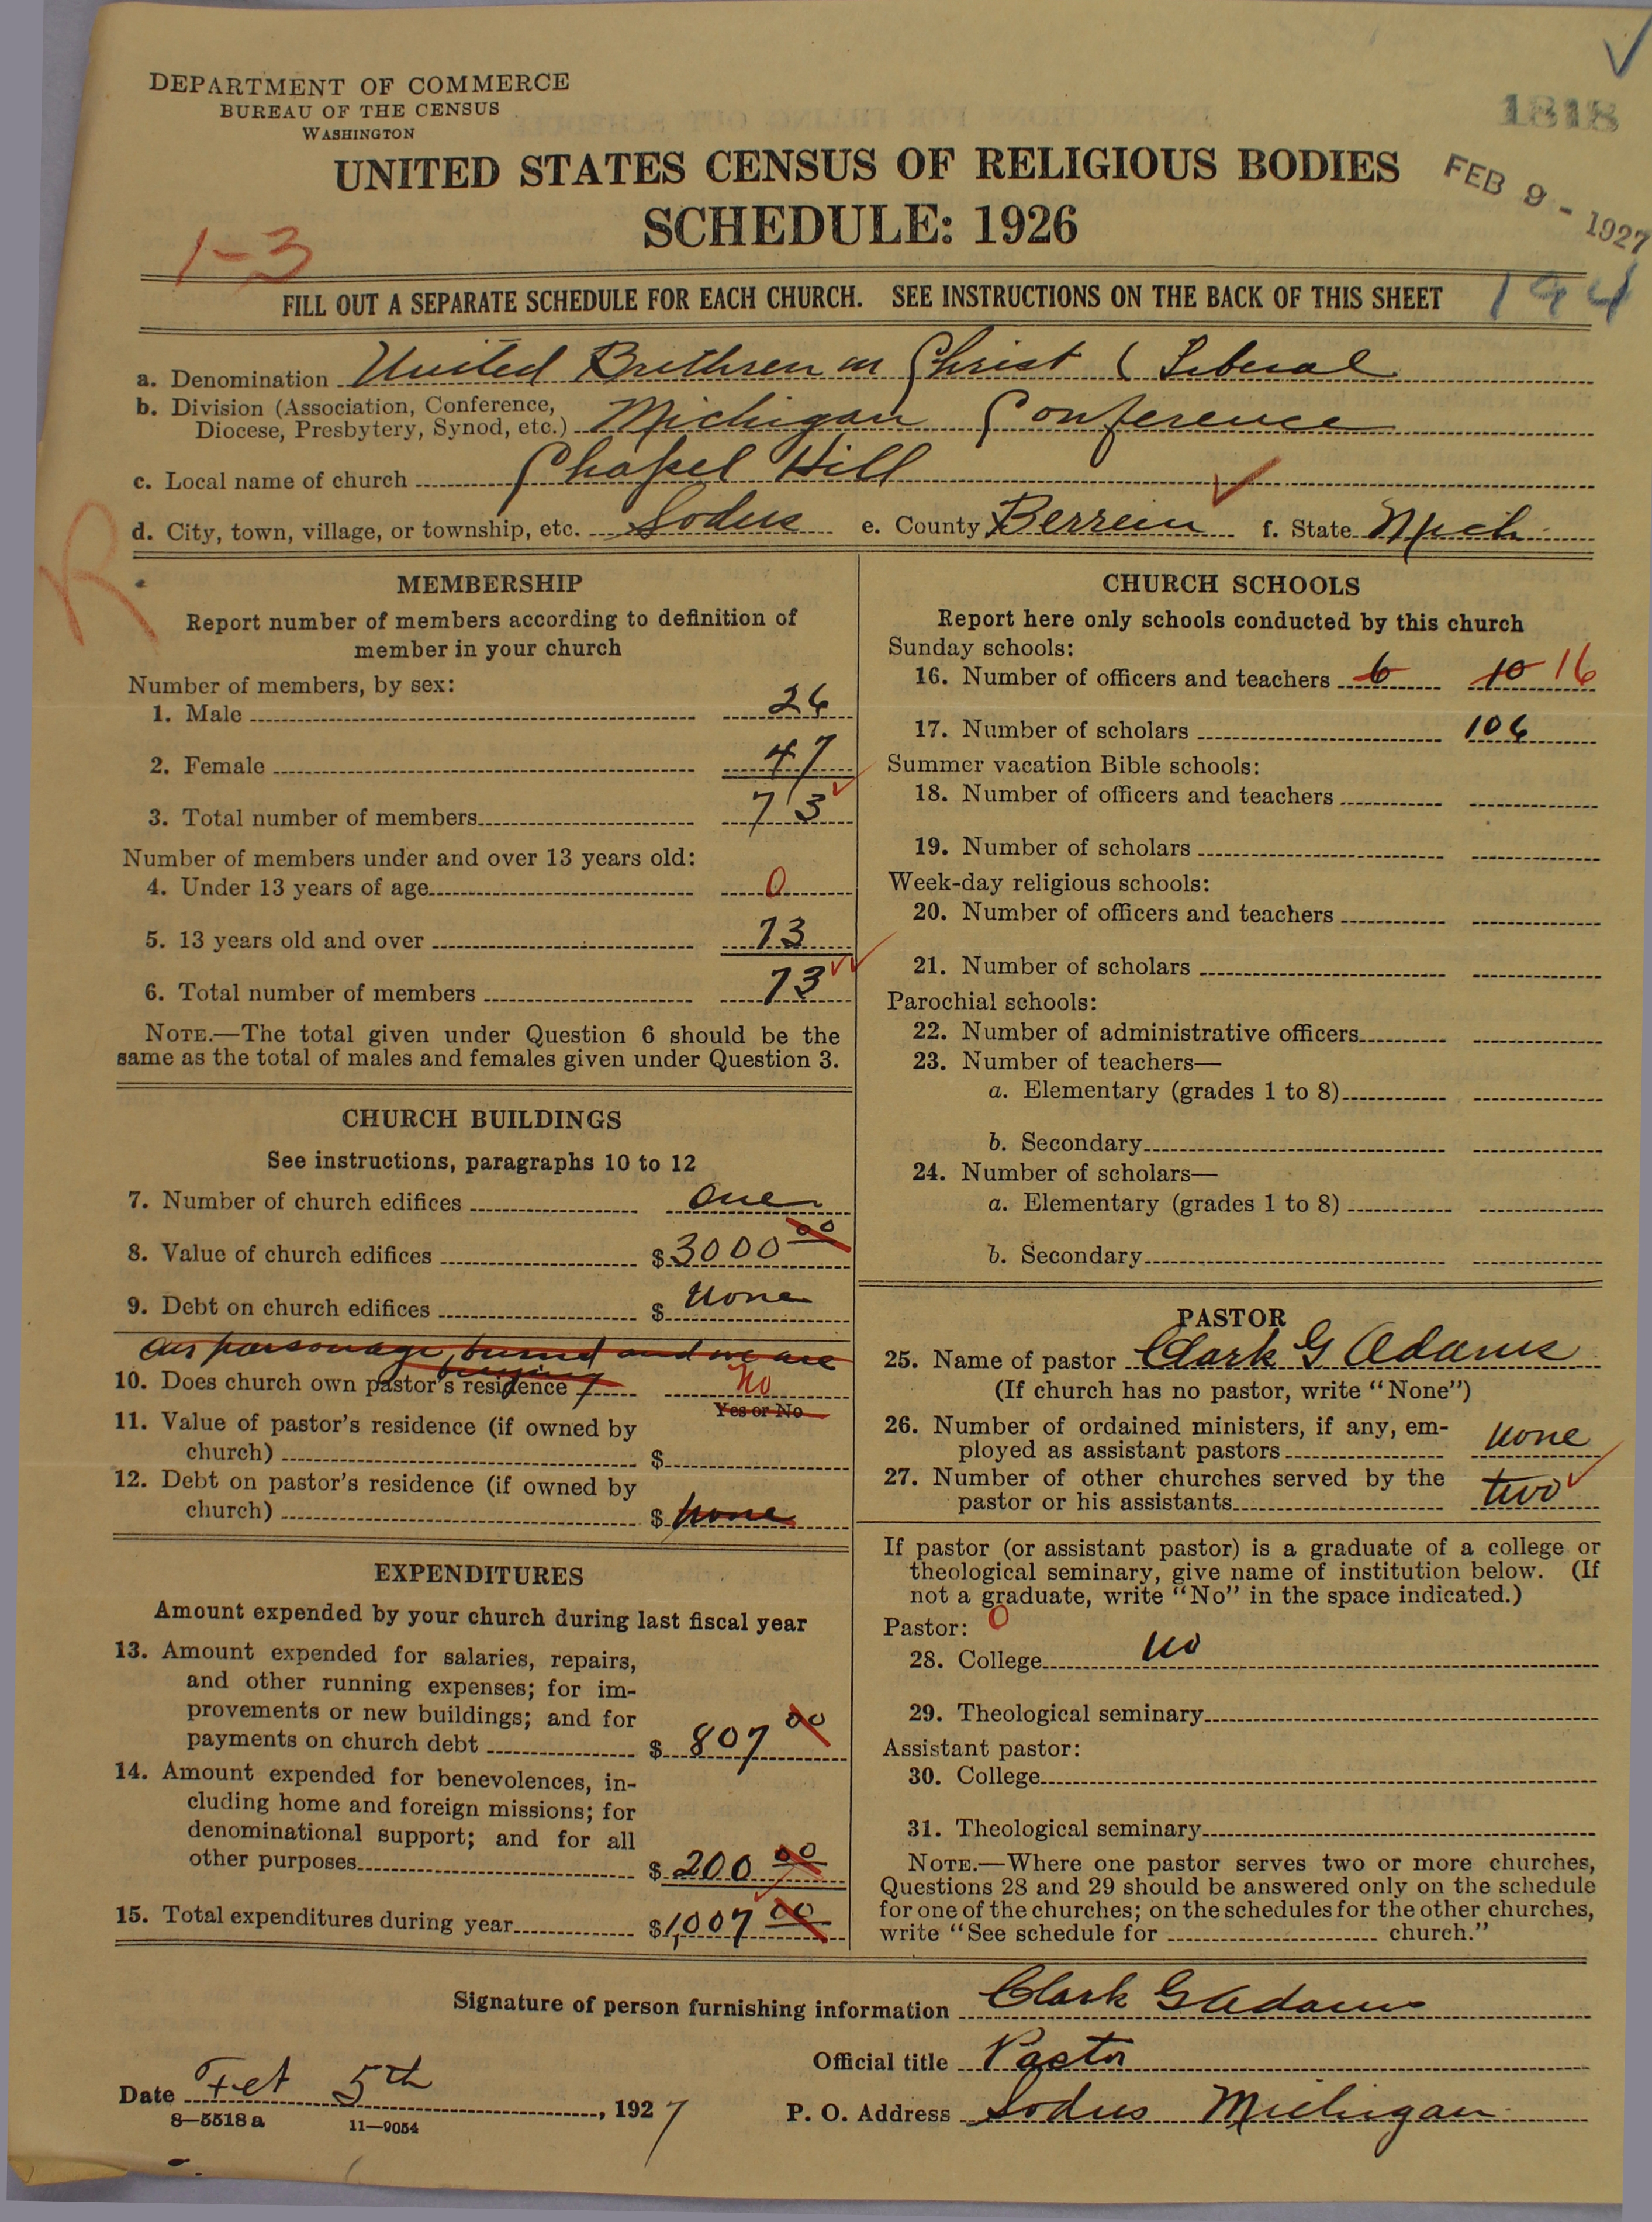 DEPARTMENT OF COMMERCE
BUREAU OF THE CENSUS
WASHINGTON
1818
UNITED STATES CENSUS OF RELIGIOUS BODIES
FEB 9 - 1927
SCHEDULE: 1926
1-3
FILL OUT A SEPARATE SCHEDULE FOR EACH CHURCH. SEE INSTRUCTIONS ON THE BACK OF THIS SHEET
194
a. Denomination United Brethren in Christ ( Liberal
b. Division (Association, Conference,
Diocese, Presbytery, Synod, etc.) Michigan Conference
c. Local name of church Chapel Hill
d. City, town, village, or township, etc. Sodus e. County Berrein f. State Mich.
R
MEMBERSHIP
Report number of members according to definition of
member in your church
Number of members, by sex:
1. Male 26
2. Female 47
3. Total number of members 73
Number of members under and over 13 years old:
4. Under 13 years of age 0
5. 13 years old and over 73
6. Total number of members 73
NOTE.—The total given under Question 6 should be the
same as the total of males and females given under Question 3.
CHURCH BUILDINGS
See instructions, paragraphs 10 to 12
7. Number of church edifices one
8. Value of church edifices $3000 00
9. Debt on church edifices $ none
Our parsonage burned and we are
10. Does church own pastor's residence? No
Yes or No
11. Value of pastor's residence (if owned by
church) $
12. Debt on pastor's residence (if owned by
church) $ none
EXPENDITURES
Amount expended by your church during last fiscal year
13. Amount expended for salaries, repairs,
and other running expenses; for im-
provements or new buildings; and for
payments on church debt $ 807 00
14. Amount expended for benevolences, in-
cluding home and foreign missions; for
denominational support; and for all
other purposes $ 200 00
15. Total expenditures during year $1,007 00
CHURCH SCHOOLS
Report here only schools conducted by this church
Sunday schools:
16. Number of officers and teachers 6 10 16
17. Number of scholars 106
Summer vacation Bible schools:
18. Number of officers and teachers
19. Number of scholars
Week-day religious schools:
20. Number of officers and teachers
21. Number of scholars
Parochial schools:
22. Number of administrative officers
23. Number of teachers—
a. Elementary (grades 1 to 8)
b. Secondary
24. Number of scholars—
a. Elementary (grades 1 to 8)
b. Secondary
PASTOR
25. Name of pastor Clark G Adams
(If church has no pastor, write "None")
26. Number of ordained ministers, if any, em-
ployed as assistant pastors none
27. Number of other churches served by the
pastor or his assistants two
If pastor (or assistant pastor) is a graduate of a college or
theological seminary, give name of institution below. (If
not a graduate, write "No" in the space indicated.)
Pastor: 0
28. College no
29. Theological seminary
Assistant pastor:
30. College
31. Theological seminary
NOTE.—Where one pastor serves two or more churches,
Questions 28 and 29 should be answered only on the schedule
for one of the churches; on the schedules for the other churches,
write "See schedule for church."
Signature of person furnishing information Clark G Adams
Official title Pastor
Date Feb 5th, 1927
P. O. Address Sodus Michigan
8—5518 a 11—9054